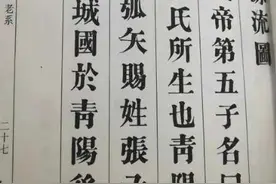 流圖
帝第五子名曰
氏所生也青陽
弧矢賜姓張
城國於青陽
老系
二十七